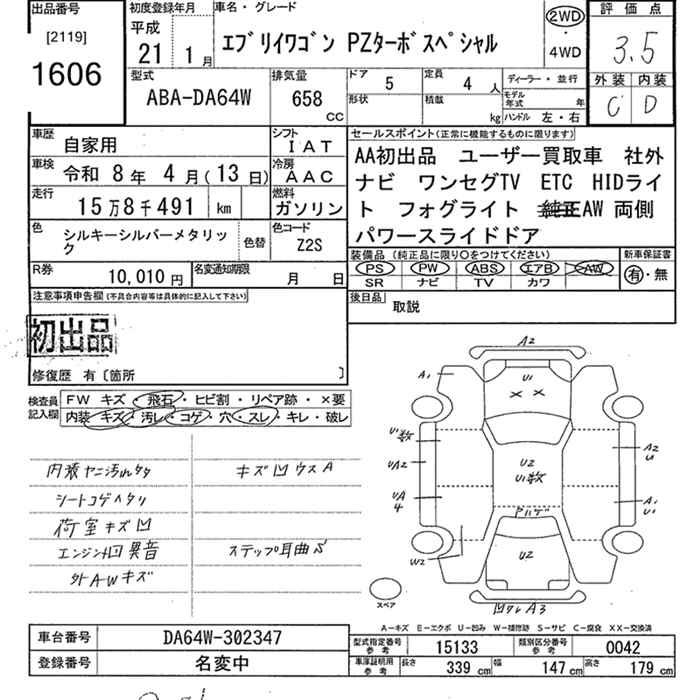 出品番号
[2119]
1606
初度登録年月
平成
21 1月
車名・グレード
エブリイワゴン PZターボスペシャル
2WD
・
4WD
評価点
3.5
外装 内装
C D
型式
ABA-DA64W
排気量
658
CC
ドア
5
定員
4
人
形状
積載
kg
ディーラー・並行
モデル年式
年
ハンドル 左・右
車歴
自家用
シフト
IAT
車検
令和 8年 4月(13日)
冷房
AAC
走行
15万8千491 km
燃料
ガソリン
色
シルキーシルバーメタリック
色替
色コード
Z2S
R券
10,010円
名変通知期限
月 日
セールスポイント(正常に機能するものに限ります)
AA初出品 ユーザー買取車 社外
ナビ ワンセグTV ETC HIDライ
ト フォグライト 純正AW 両側
パワースライドドア
装備品(純正品に限り○をつけてください)
PS PW ABS エアB AW
SR ナビ TV カワ
新車保証書
有・無
後日品
取説
注意事項申告欄(不具合内容等は具体的に記入して下さい)
初出品
修復歴 有〔箇所 〕
検査員
記入欄
FW キズ・飛石・ヒビ割・リペア跡・×要
内装 キズ・汚レ・コゲ・穴・スレ・キレ・破レ
内張ヤニ汚れ
キズ凹ウスA
シートコゲヘタリ
荷室キズ凹
エンジン回異音
ステップ耳曲り
外AWキズ
A2
A1
U1
××
U1数
UA2
UA
4
U2
U1数
A2
U
A1
U1
Pハゲ
W2
U2
凹ワレA3
スペア
A−キズ E−エクボ U−凹み W−補修跡 S−サビ C−腐食 XX−交換済
車台番号
DA64W-302347
登録番号
名変中
型式指定番号
参考
15133
類別区分番号
参考
0042
車庫証明用
参考
長さ
339 cm
幅
147 cm
高さ
179 cm